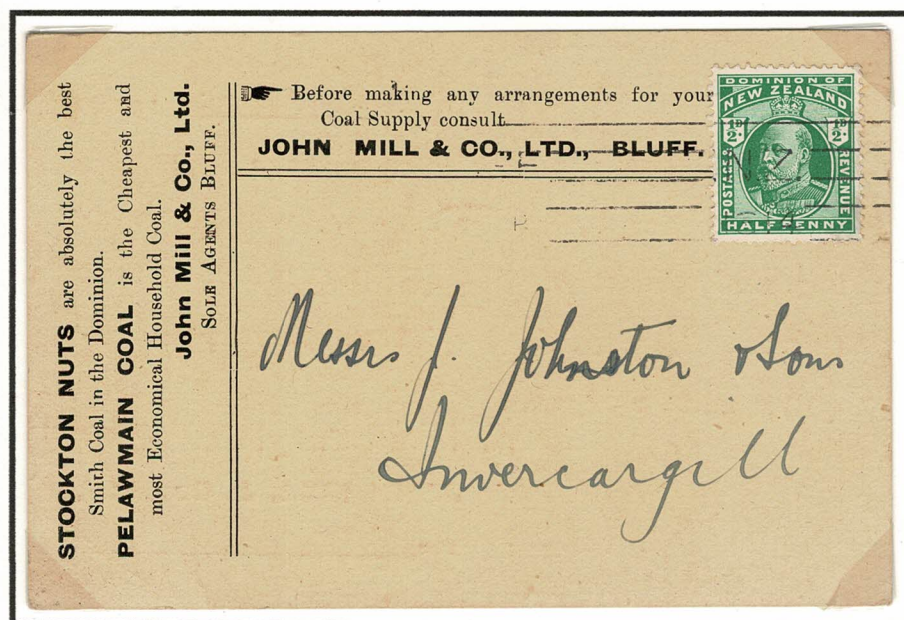 STOCKTON NUTS are absolutely the best
Smith Coal in the Dominion.
PELAWMAIN COAL is the Cheapest and
most Economical Household Coal.
John Mill & Co., Ltd.
SOLE AGENTS BLUFF.
Before making any arrangements for your
Coal Supply consult
JOHN MILL & CO., LTD., BLUFF.
DOMINION OF
NEW ZEALAND
½D ½D
POSTAGE &
REVENUE
HALF PENNY
N.Z.
Messrs J. Johnston & Sons
Invercargill